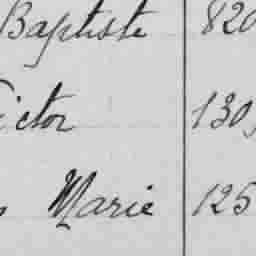 Baptiste 820
ictor 130,
Marie 125